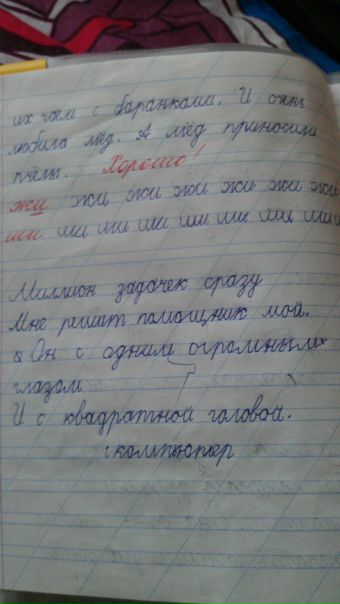 их чаем с баранками. И очень
любила мёд. А мёд приносили
пчёлы. Хорошо!
жи жи жи жи жи жи жи
ши ши ши ши ши ши ши ши
Миллион задачек сразу
Мне решит помощник мой.
Он с одним огромным
глазом
И с квадратной головой.
компьютер